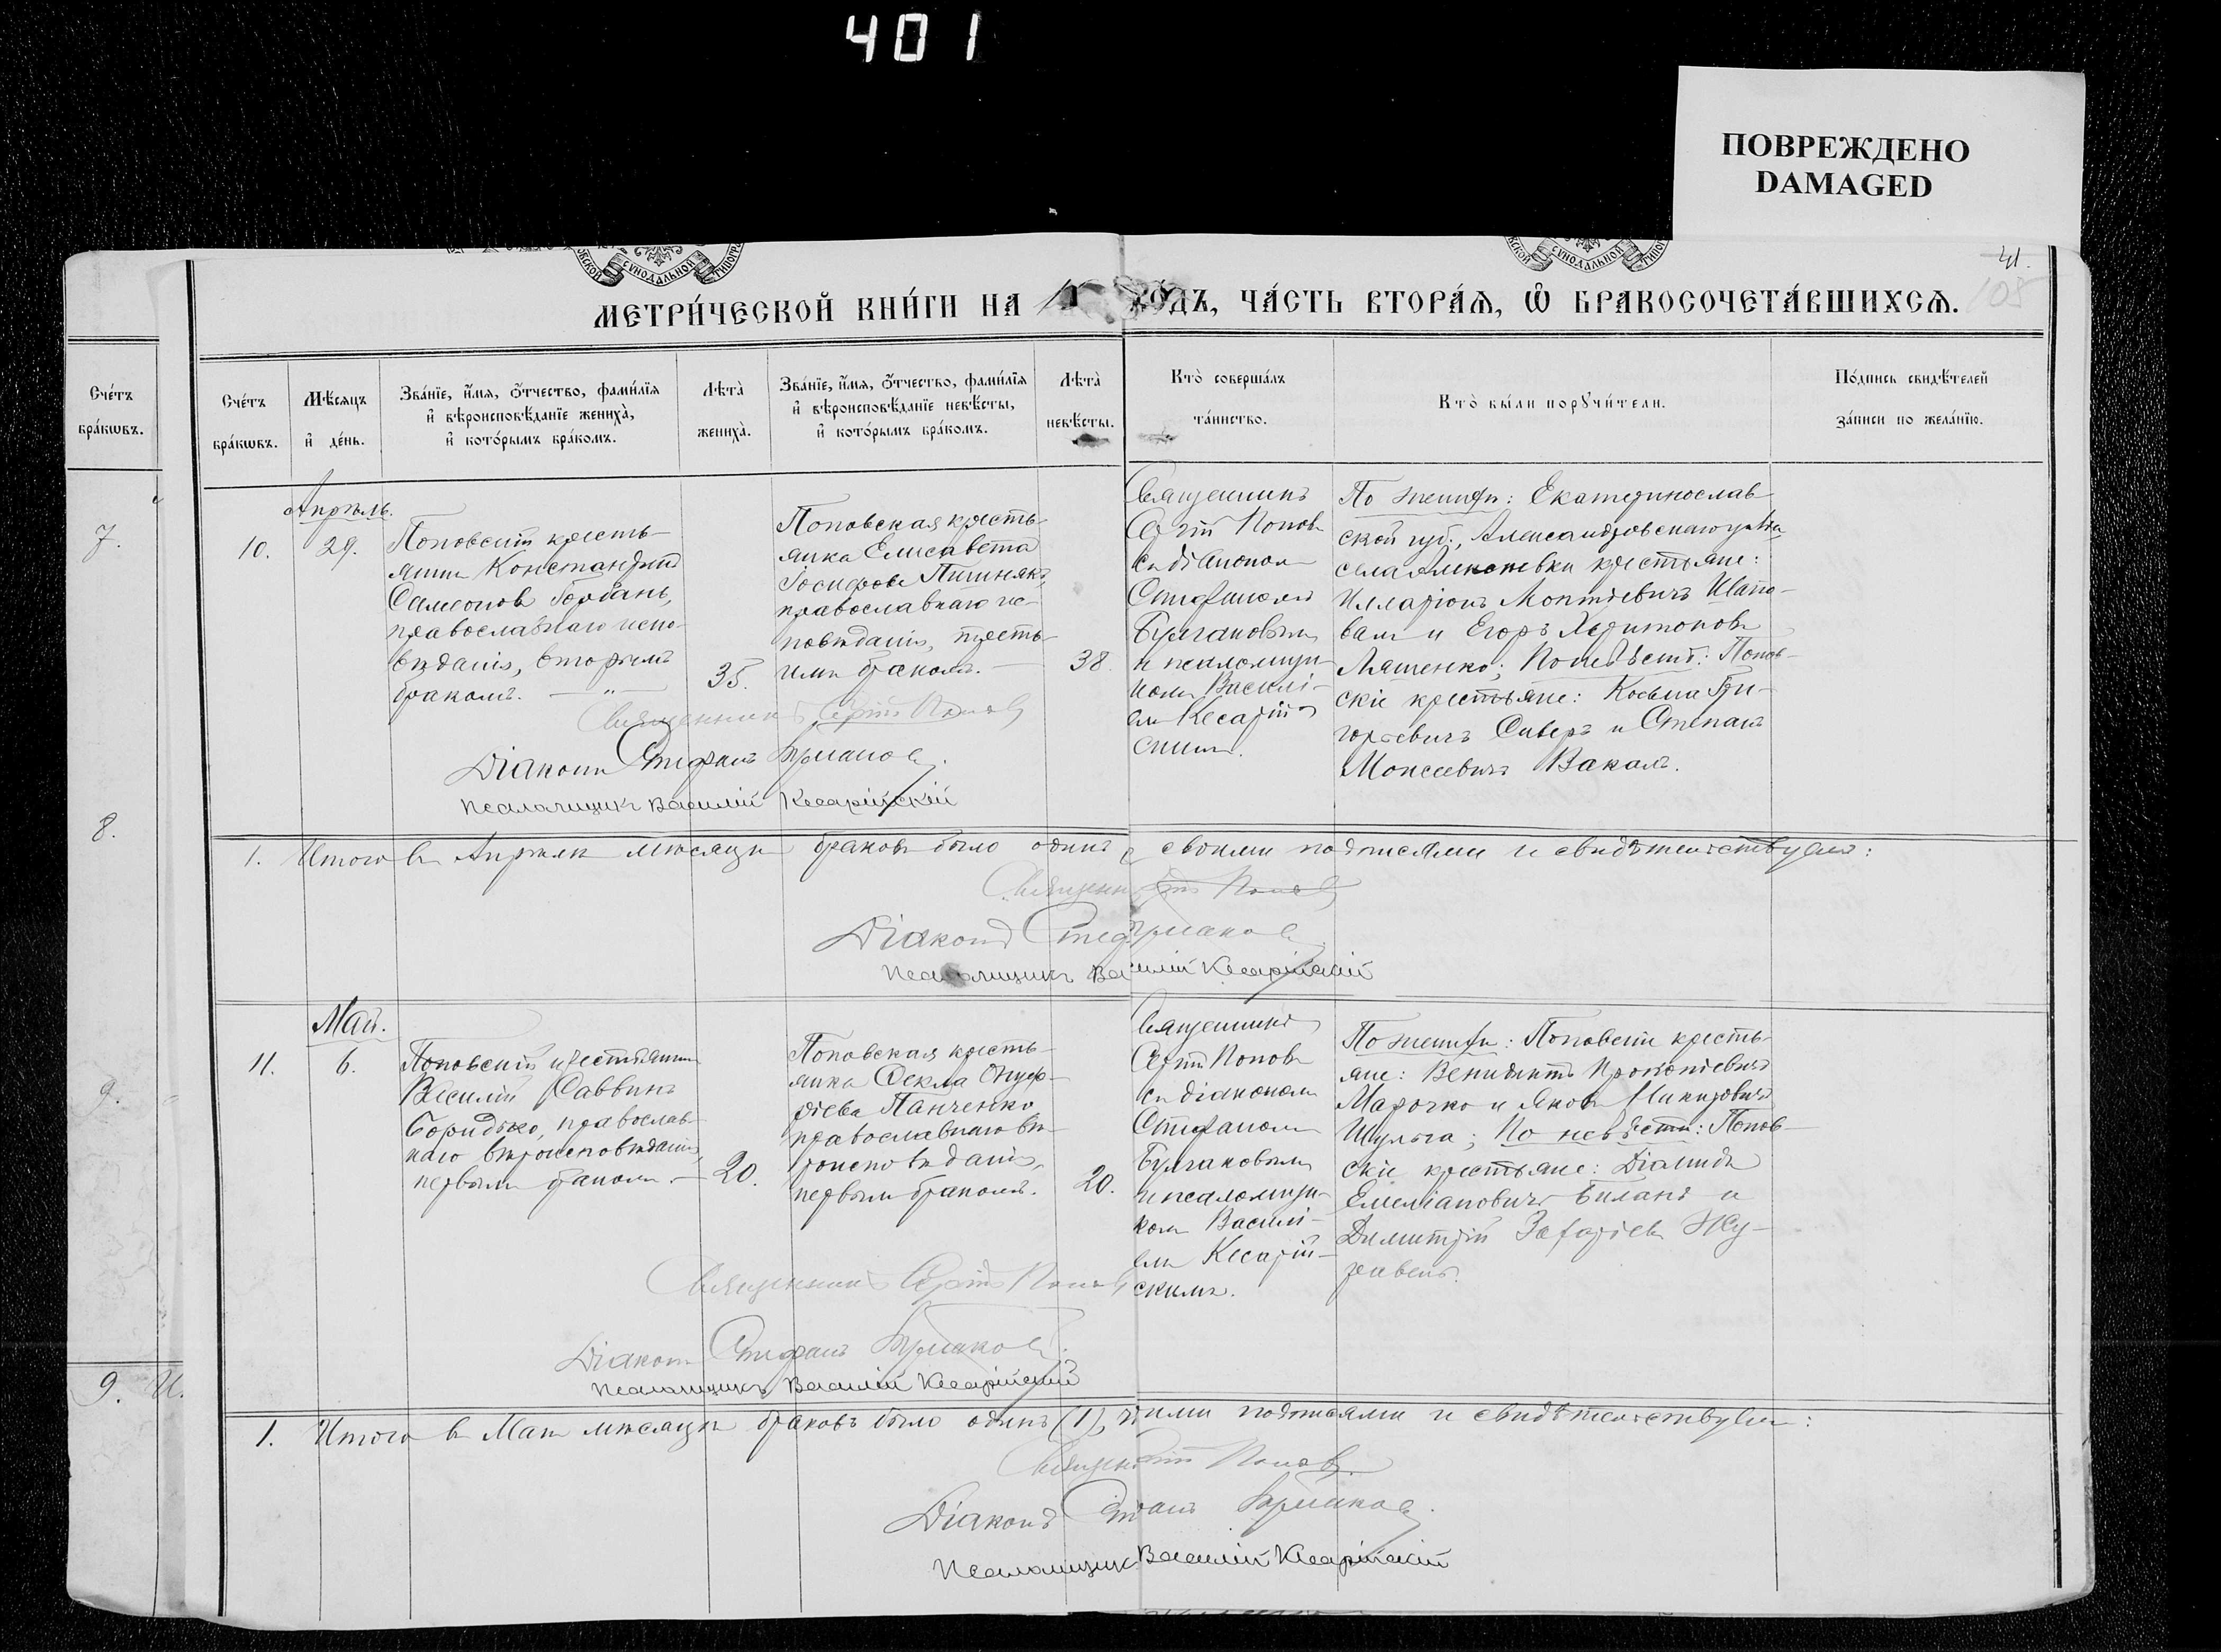 401
ПОВРЕЖДЕНО
DAMAGED
41.
105
МЕТРИ́ЧЕСКОЙ КНИ́ГИ НА 1 ГО́ДЪ, ЧА́СТЬ ВТОРА́Ѧ, Ѡ҆ БРАКОСОЧЕТА́ВШИХСѦ.
Сче́тъ
бра́кѡвъ.
Сче́тъ
бра́кѡвъ.
Мѣ́сяцъ
и҆ де́нь.
Зва́нїе, и҆́мѧ, ѻ҆́тчество, фами́лїѧ
и҆ вѣроисповѣ́данїе жениха̀,
и҆ кото́рымъ бра́комъ.
Лѣ́та
жениха̀.
Зва́нїе, и҆́мѧ, ѻ҆́тчество, фами́лїѧ
и҆ вѣроисповѣ́данїе невѣ́сты,
и҆ кото́рымъ бра́комъ.
Лѣ́та
невѣ́сты.
Кто̀ соверша́лъ
та́инство.
Кто̀ бы́ли порꙋчи́тели.
По́дпись свидѣ́телей
за́писи по жела́нїю.
7.
8.
9.
9. И.
10.
Апрѣль.
29.
Поповскій кресть-
янинъ Константинъ
Самсоновъ Горбань,
православнаго испо-
вѣданія, вторымъ
бракомъ. — " —
35.
Поповская кресть-
янка Елисавета
Іосифова Пишнякъ,
православнаго ис-
повѣданія, треть-
имъ бракомъ. —
38.
Священникъ
Сергій Поповъ
съ діакономъ
Стефаномъ
Булгаковымъ
и псаломщи-
комъ Василі-
емъ Кесарій-
скимъ.
По женихѣ: Екатеринослав-
ской губ., Александровскаго уѣзда,
села крестьяне:
Илларіонъ Шапо-
валъ и Егоръ Харитоновъ
Ляшенко; По невѣстѣ: Попов-
скіе крестьяне: Косьма Гри-
горьевичъ Сиверъ и Степанъ
Моисеевичъ Вакалъ.
Священникъ Сергій Поповъ
Діаконъ Стефанъ Булгаковъ.
Псаломщикъ Василій Кесарійскій
1. Итого въ Апрѣлѣ мѣсяцѣ браковъ было одинъ, своими подписями и свидѣтельствуемъ:
Священн Сергій Поповъ
Діаконъ Стеф Булгаковъ.
Псаломщикъ Василій Кесарійскій
Май.
11.
6.
Поповскій крестьянинъ
Василій Саввинъ
Боридько, православ-
наго вѣроисповѣданія,
первымъ бракомъ. —
20.
Поповская кресть-
янка Ѳекла Онуф-
ріева Панченко
православнаго вѣ-
роисповѣданія,
первымъ бракомъ.
20.
Священникъ
Сергій Поповъ
съ діакономъ
Стефаномъ
Булгаковымъ
и псаломщи-
комъ Василі-
емъ Кесарій-
скимъ.
По женихѣ: Поповскіе кресть-
яне: Венидиктъ Прокопіевичъ
Марочко и Яковъ
Шульга; По невѣстѣ: Попов-
скіе крестьяне: Діамидъ
Емеліановичъ Биланъ и
Димитрій Захаріевъ Жу-
равель.
Священникъ Сергій Поповъ
Діаконъ Стефанъ Булгаковъ.
Псаломщикъ Василій Кесарійскій
1. Итого въ Маѣ мѣсяцѣ браковъ было одинъ (1), ими подписями и свидѣтельствуемъ:
Священ гій Поповъ.
Діаконъ Ст фанъ Булгаковъ.
Псаломщик Василій Кесарійскій